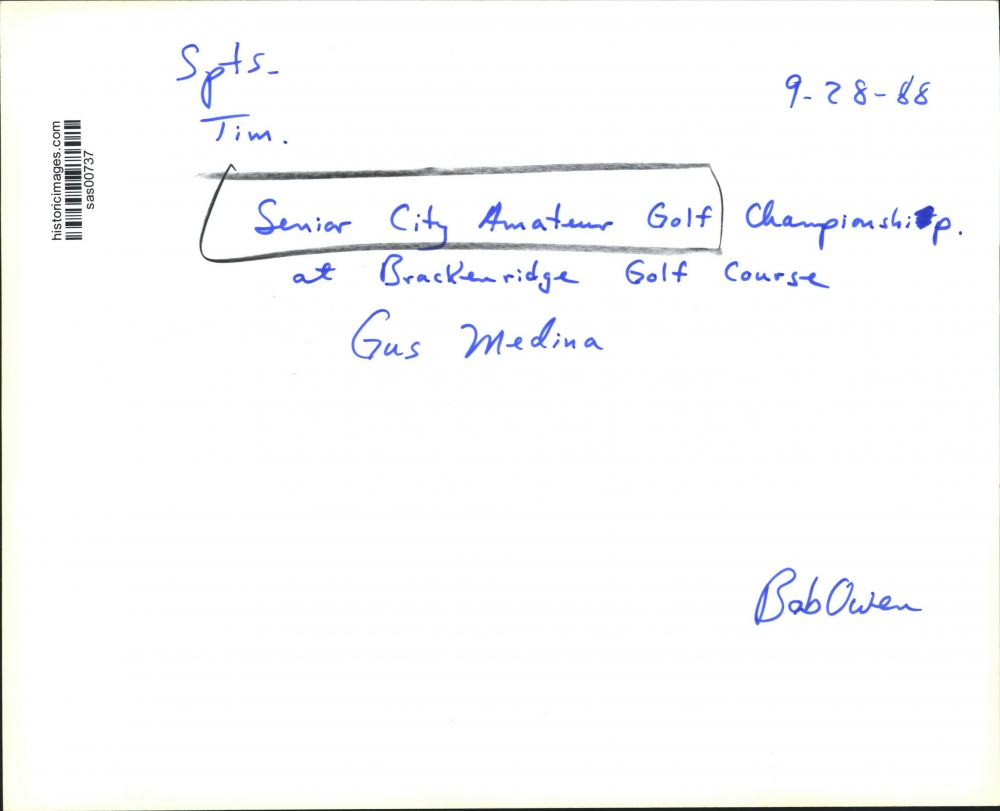 Spts-
9-28-88
Tim.
Senior City Amateur Golf Championship.
at Brackenridge Golf Course
Gus Medina
Bob Owen
historicimages.com
sas00737